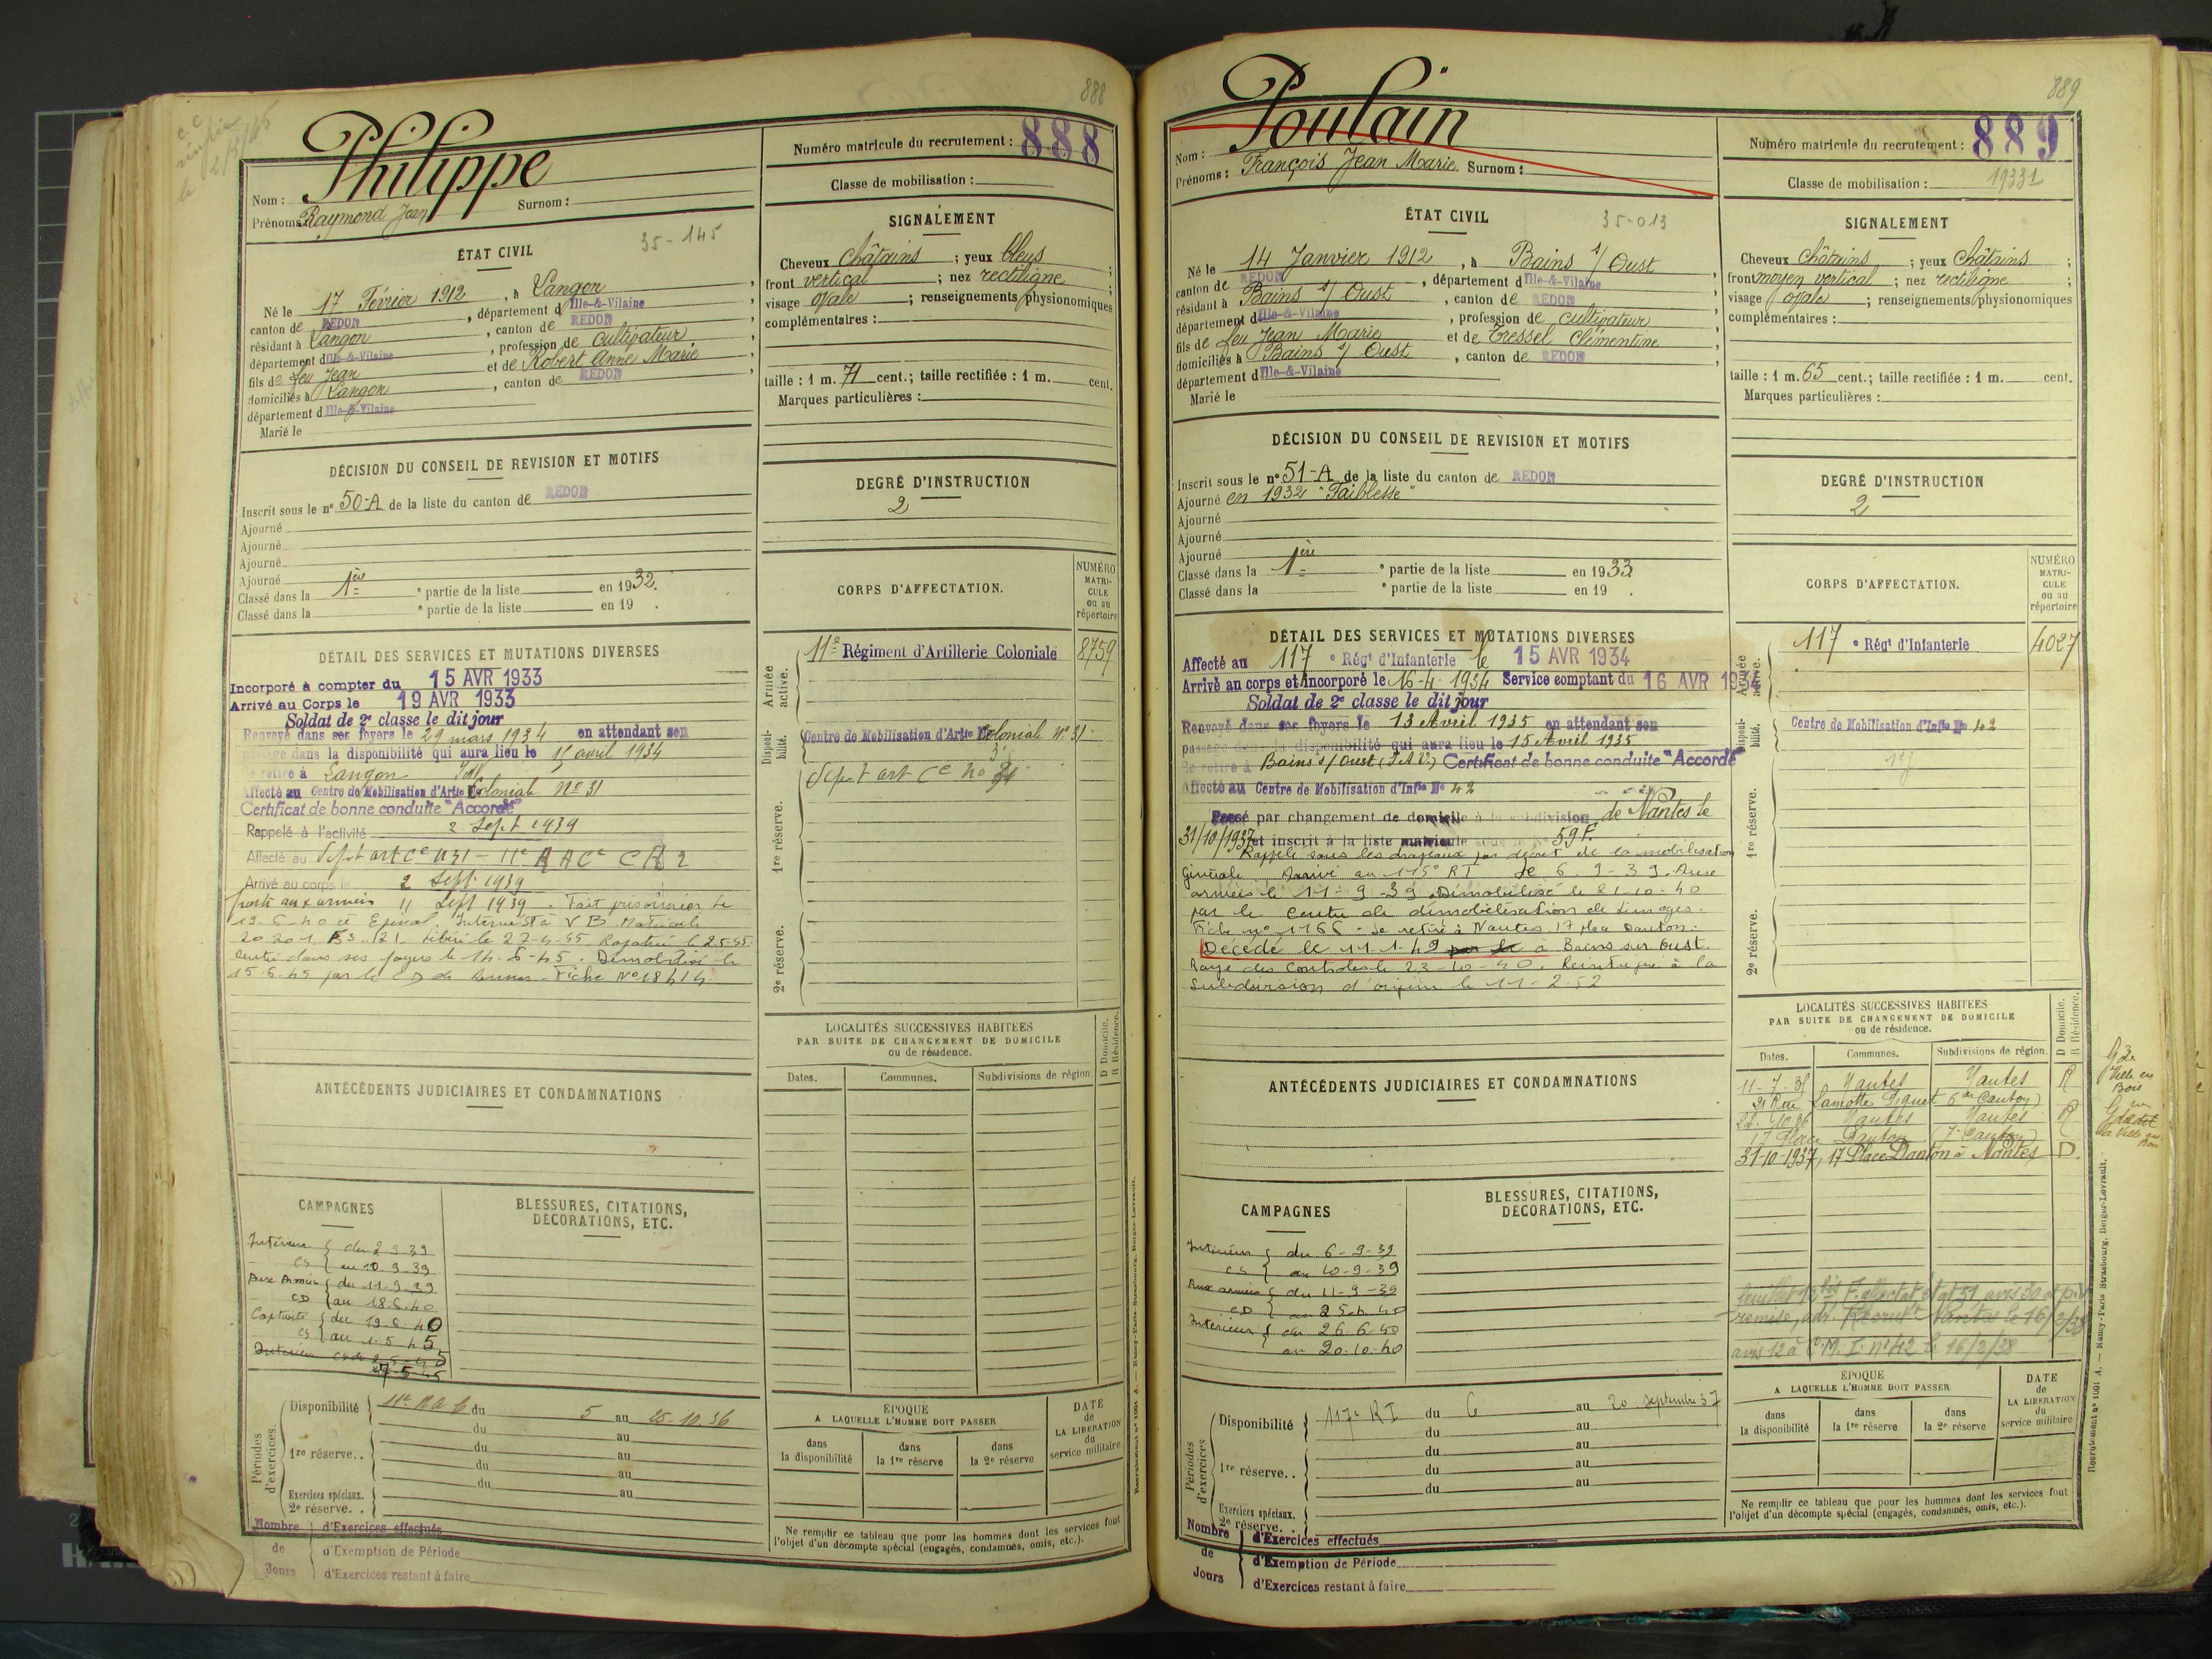 888
C.C.
le 2/3/45
Philippe
Nom :
Prénoms : Raymond Jean Surnom :
Numéro matricule du recrutement : 888
Classe de mobilisation :
ÉTAT CIVIL
35-145
Né le 17 Février 1912, à Langon,
canton de REDON, département d'Ille-&-Vilaine,
résidant à Langon, canton de REDON,
département d'Ille-&-Vilaine, profession de cultivateur,
fils de feu Jean et de Robert Anne Marie,
domiciliés à Langon, canton de REDON,
département d'Ille-&-Vilaine
Marié le
SIGNALEMENT
Cheveux châtains ; yeux bleus ;
front vertical ; nez rectiligne ;
visage ovale ; renseignements physionomiques
complémentaires :
taille : 1 m. 71 cent.; taille rectifiée : 1 m. cent.
Marques particulières :
DÉCISION DU CONSEIL DE REVISION ET MOTIFS
Inscrit sous le n° 50-A de la liste du canton de REDON
Ajourné
Ajourné
Ajourné
Ajourné
Classé dans la 1ère e partie de la liste en 1932.
Classé dans la e partie de la liste en 19 .
DEGRÉ D'INSTRUCTION
2
CORPS D'AFFECTATION.
NUMÉRO MATRICULE ou au répertoire
Armée active.
11e Régiment d'Artillerie Coloniale 8759
Disponibilité.
Centre de Mobilisation d'Artie Coloniale N° 31
1re réserve.
2e réserve.
DÉTAIL DES SERVICES ET MUTATIONS DIVERSES
Incorporé à compter du 15 AVR 1933
Arrivé au Corps le 19 AVR 1933
Soldat de 2e classe le dit jour
Renvoyé dans ses foyers le 29 mars 1934 en attendant son
passage dans la disponibilité qui aura lieu le 15 avril 1934
Se retire à Langon
Affecté au Centre de Mobilisation d'Artie Coloniale N° 31
Certificat de bonne conduite "Accordé"
Rappelé à l'activité 2 Sept 1939
Affecté au Dépôt art Ce n°31 - 11e RAC
Arrivé au corps le 2 Sept 1939
parti aux armées 11 Sept 1939. Fait prisonnier le
19-6-40 à Epinal. Interné St à V B Matricule
Rapatrié
rentré dans ses foyers le 14-6-45. Démobilisé le
15-6-45 par le CD de Rennes - Fiche N°18414
LOCALITÉS SUCCESSIVES HABITÉES
PAR SUITE DE CHANGEMENT DE DOMICILE
ou de résidence.
D Domicile. R Résidence.
Dates. Communes. Subdivisions de région.
ANTÉCÉDENTS JUDICIAIRES ET CONDAMNATIONS
CAMPAGNES
BLESSURES, CITATIONS, DÉCORATIONS, ETC.
Intérieur du 2 9 39
CS au 10 9 39
Aux Armées du 11-9-39
CD au 18.6.40
Captivité du 19 6 40
CS au 1.5 45
Périodes d'exercices.
Disponibilité 11e RAC du 5 au 25-10-36
du au
1re réserve.. du au
du au
du au
Exercices spéciaux.
2e réserve. .
Nombre de Jours
d'Exercices effectués
d'Exemption de Période
d'Exercices restant à faire
ÉPOQUE
A LAQUELLE L'HOMME DOIT PASSER
dans la disponibilité
dans la 1re réserve
dans la 2e réserve
DATE de LA LIBÉRATION du service militaire
Ne remplir ce tableau que pour les hommes dont les services font
l'objet d'un décompte spécial (engagés, condamnés, omis, etc.).
889
Poulain
Nom :
Prénoms : François Jean Marie Surnom :
Numéro matricule du recrutement : 889
Classe de mobilisation : 1933/1
ÉTAT CIVIL
35-013
Né le 14 Janvier 1912, à Bains s/ Oust,
canton de REDON, département d'Ille-&-Vilaine,
résidant à Bains s/ Oust, canton de REDON,
département d'Ille-&-Vilaine, profession de cultivateur,
fils de feu Jean Marie et de Tressel Clémentine,
domiciliés à Bains s/ Oust, canton de REDON,
département d'Ille-&-Vilaine
Marié le
SIGNALEMENT
Cheveux châtains ; yeux châtains ;
front moyen vertical ; nez rectiligne ;
visage ovale ; renseignements physionomiques
complémentaires :
taille : 1 m. 65 cent.; taille rectifiée : 1 m. cent.
Marques particulières :
DÉCISION DU CONSEIL DE REVISION ET MOTIFS
Inscrit sous le n° 51-A de la liste du canton de REDON
Ajourné en 1932 "Faiblesse"
Ajourné
Ajourné
Ajourné
Classé dans la 1ère e partie de la liste en 1933
Classé dans la e partie de la liste en 19 .
DEGRÉ D'INSTRUCTION
2
CORPS D'AFFECTATION.
NUMÉRO MATRICULE ou au répertoire
Armée active.
117 e Régt d'Infanterie 4027
Disponibilité.
Centre de Mobilisation d'Infie N° 42
1re réserve.
2e réserve.
DÉTAIL DES SERVICES ET MUTATIONS DIVERSES
Affecté au 117 e Régt d'Infanterie le 15 AVR 1934
Arrivé au corps et incorporé le 16-4-1934 Service comptant du 16 AVR 1934
Soldat de 2e classe le dit jour
Renvoyé dans ses foyers le 13 Avril 1935 en attendant son
passage dans la disponibilité qui aura lieu le 15 Avril 1935
Se retire à Bains s/Oust (I et V) Certificat de bonne conduite "Accordé"
Affecté au Centre de Mobilisation d'Infie N° 42
Passé par changement de domicile à la subdivision de Nantes le
31/10/1937 et inscrit à la liste matricule sous le N° 59F.
Rappelé sous les drapeaux par décret de la mobilisation
générale. Arrivé au 115° RI le 6-9-39. Aux
armées le 11-9-39. Démobilisé le 21-10-40
par le centre de démobilisation de Limoges.
Fiche n° 1166 - Se retire à Nantes 17 place Danton.
Décédé le 11-1-49 à Bains sur Oust.
Rayé des contrôles le 23-10-50. Réintégré à la
subdivision d'origine le 11-2-52
LOCALITÉS SUCCESSIVES HABITÉES
PAR SUITE DE CHANGEMENT DE DOMICILE
ou de résidence.
D Domicile. R Résidence.
Dates. Communes. Subdivisions de région.
11-7-35 Nantes Nantes R
21 Rue Lamotte Piquet 6e Canton
22-10-36 Nantes Nantes R
17 Place Danton (7e Canton)
31-10-1937, 17 Place Danton à Nantes D.
ANTÉCÉDENTS JUDICIAIRES ET CONDAMNATIONS
CAMPAGNES
BLESSURES, CITATIONS, DÉCORATIONS, ETC.
Intérieur du 6-9-39
CS au 10-9-39
Aux armées du 11-9-39
CD au 25-6-40
Intérieur du 26.6.40
au 20-10-40
avis 12 à C.M.I. n°42 le 16/2/38
Périodes d'exercices
Disponibilité 117e RI du 6 au 20 septembre 37
du au
1re réserve.. du au
du au
du au
Exercices spéciaux.
2e réserve. .
Nombre de Jours
d'Exercices effectués
d'Exemption de Période
d'Exercices restant à faire
ÉPOQUE
A LAQUELLE L'HOMME DOIT PASSER
dans la disponibilité
dans la 1re réserve
dans la 2e réserve
DATE de LA LIBÉRATION du service militaire
Ne remplir ce tableau que pour les hommes dont les services font
l'objet d'un décompte spécial (engagés, condamnés, omis, etc.).
Recrutement n° 1001 A. — Nancy-Paris-Strasbourg, Berger-Levrault.